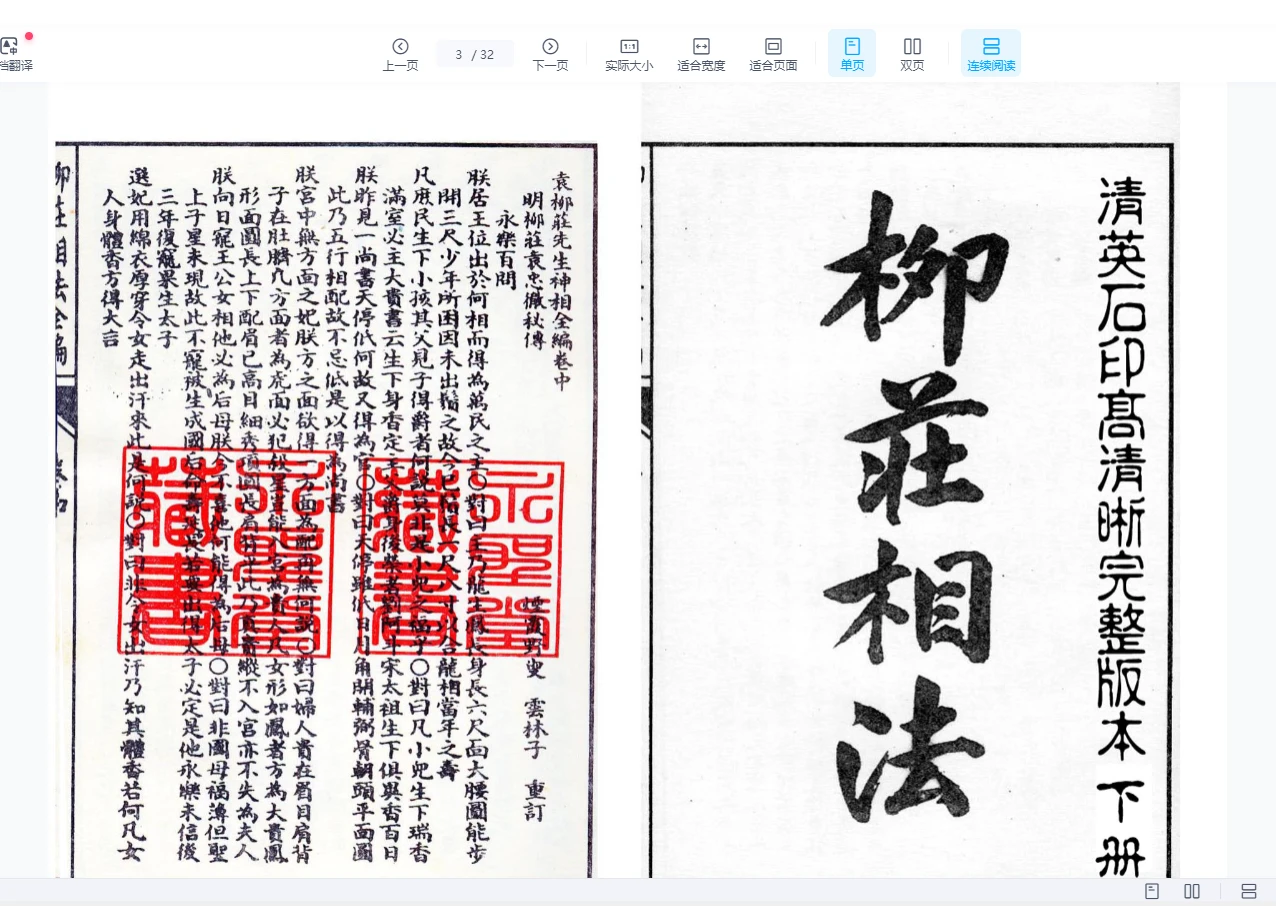 档翻译
上一页
3 / 32
下一页
1:1
实际大小
适合宽度
适合页面
单页
双页
连续阅读
清英石印髙清晰完整版本 下册
柳莊相法
袁柳莊先生神相全編卷中
明柳莊袁忠徹秘傳 煙霞野叟 雲林子 重訂
永樂百問
朕居王位出於何相而得為萬民之主〇對曰主乃龍生鳳長身長六尺面大腰圓能步
開三尺少年所困因未出鬚之故今已鬚長一尺八寸以合龍相當年之壽
凡庶民生下小孩其父見子得爵者何説莫非是小兒之福乎〇對曰凡小兒生下瑞香
滿室必主大貴書云生下身香定主大貴身後榮者劉阿斗宋太祖生下俱異香百日
朕昨見一尚書天停低何故又得為官〇對曰天停雖低日月角開輔弼骨朝頭平面圓
此乃五行相配故不忌低是以得為尚書
朕宮中無方面之妃朕方之面欲得一方面為配再無何説〇對曰婦人貴在眉目肩背
子在肚臍凢方面者為虎面必犯殺星豈能入宮為貴人凡女形如鳳者方為大貴鳳
形面圓長上下配眉已高目細秀項圓長肩背平此乃真貴縱不入宮亦不失為夫人
朕向日寵王公女相他必為后母朕今不喜他何能得為后母〇對曰非國母福薄但聖
上子星未現故此不寵彼生成國后命壽更長若要出得太子必定是他永樂未信後
三年復寵果生太子
選妃用綿衣厚穿令女走出汗來此是何説〇對曰非令女出汗乃知其體香若何凡女
人身體香方得大吉
柳莊相法全編
永聖堂
藏書
永聖堂
藏書